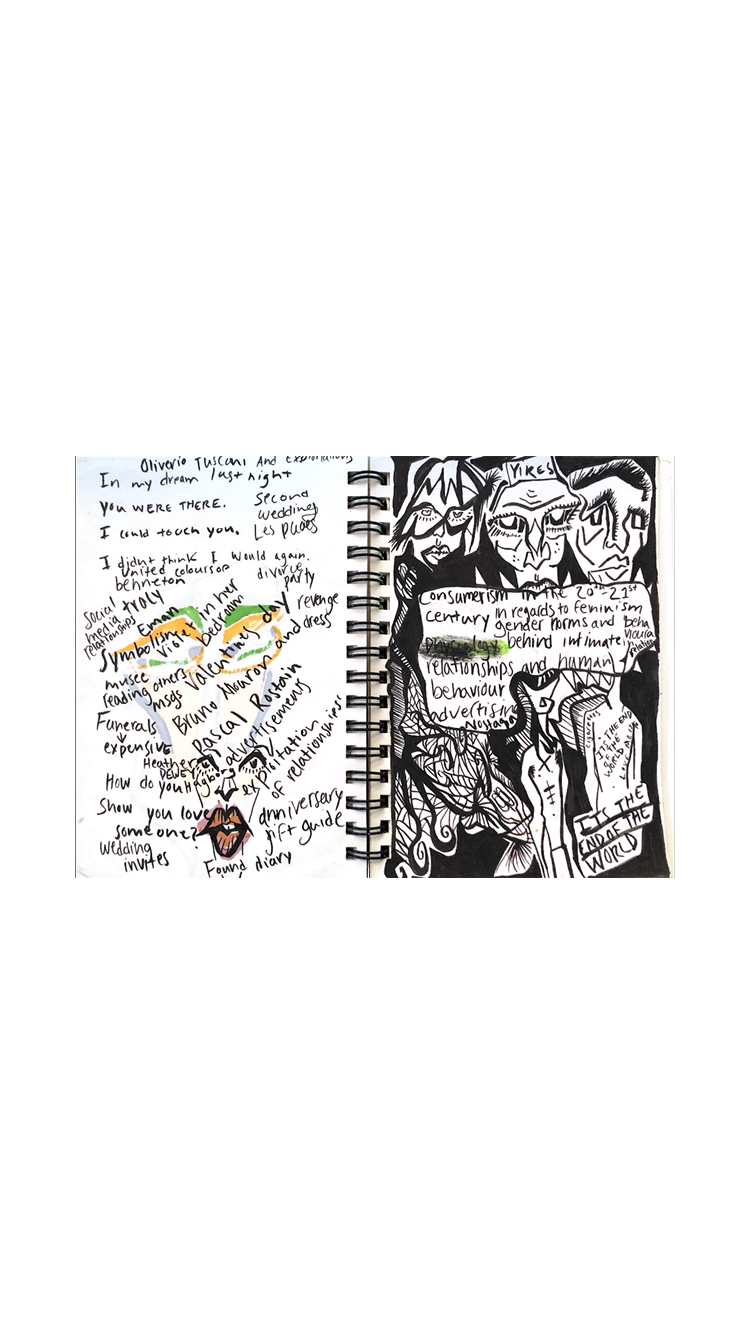 Oliverio Tuscani And Exploitations
In my dream last night
YOU WERE THERE.
Second
wedding
I could touch you.
Les puces
I didn't think I would again.
united colours of
behneton
divorce
party
social
media
relationships
troly
Eman
in her
bedroom
revenge
dress
Symbolism
Violet
Valentines day
and
musee
reading others
msgs
Bruno Mouron
Pascal Rostain
Funerals
↓
expensive
advertisements
exploitation
of relationships
Heather
DEWEY
Hagborg
How do you
Show you love
someone?
anniversary
gift guide
wedding
invites
Found diary
YIKES
Consumerism in the 20th-21st
century in regards to feminism
gender norms and
behind intimate
relationships and human
behaviour
advertising
Nostalgia
IT'S THE END
OF THE
WORLD
ITS THE
END OF THE
WORLD